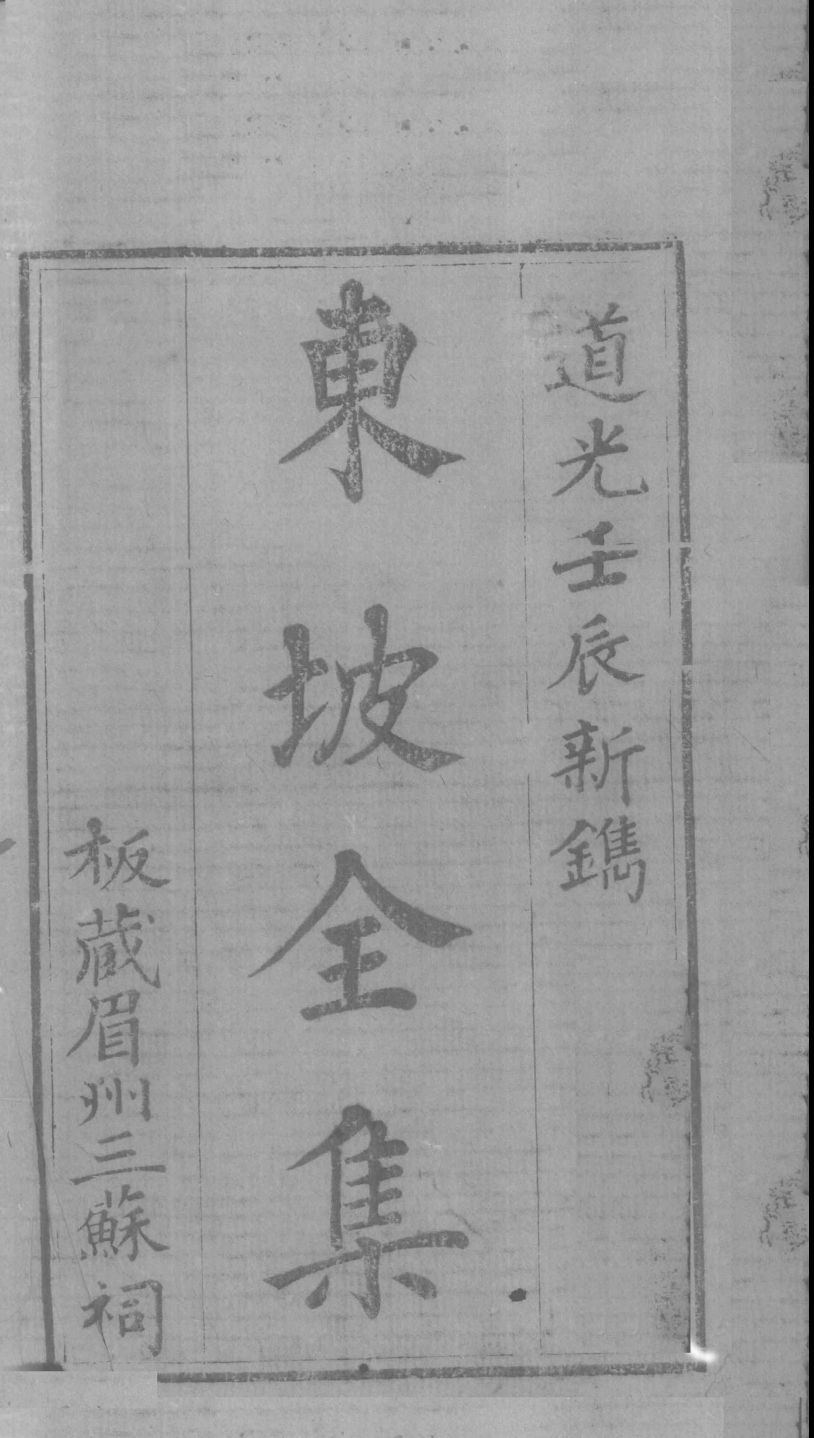 道光壬辰新鐫
東坡全集
板藏眉州三蘇祠